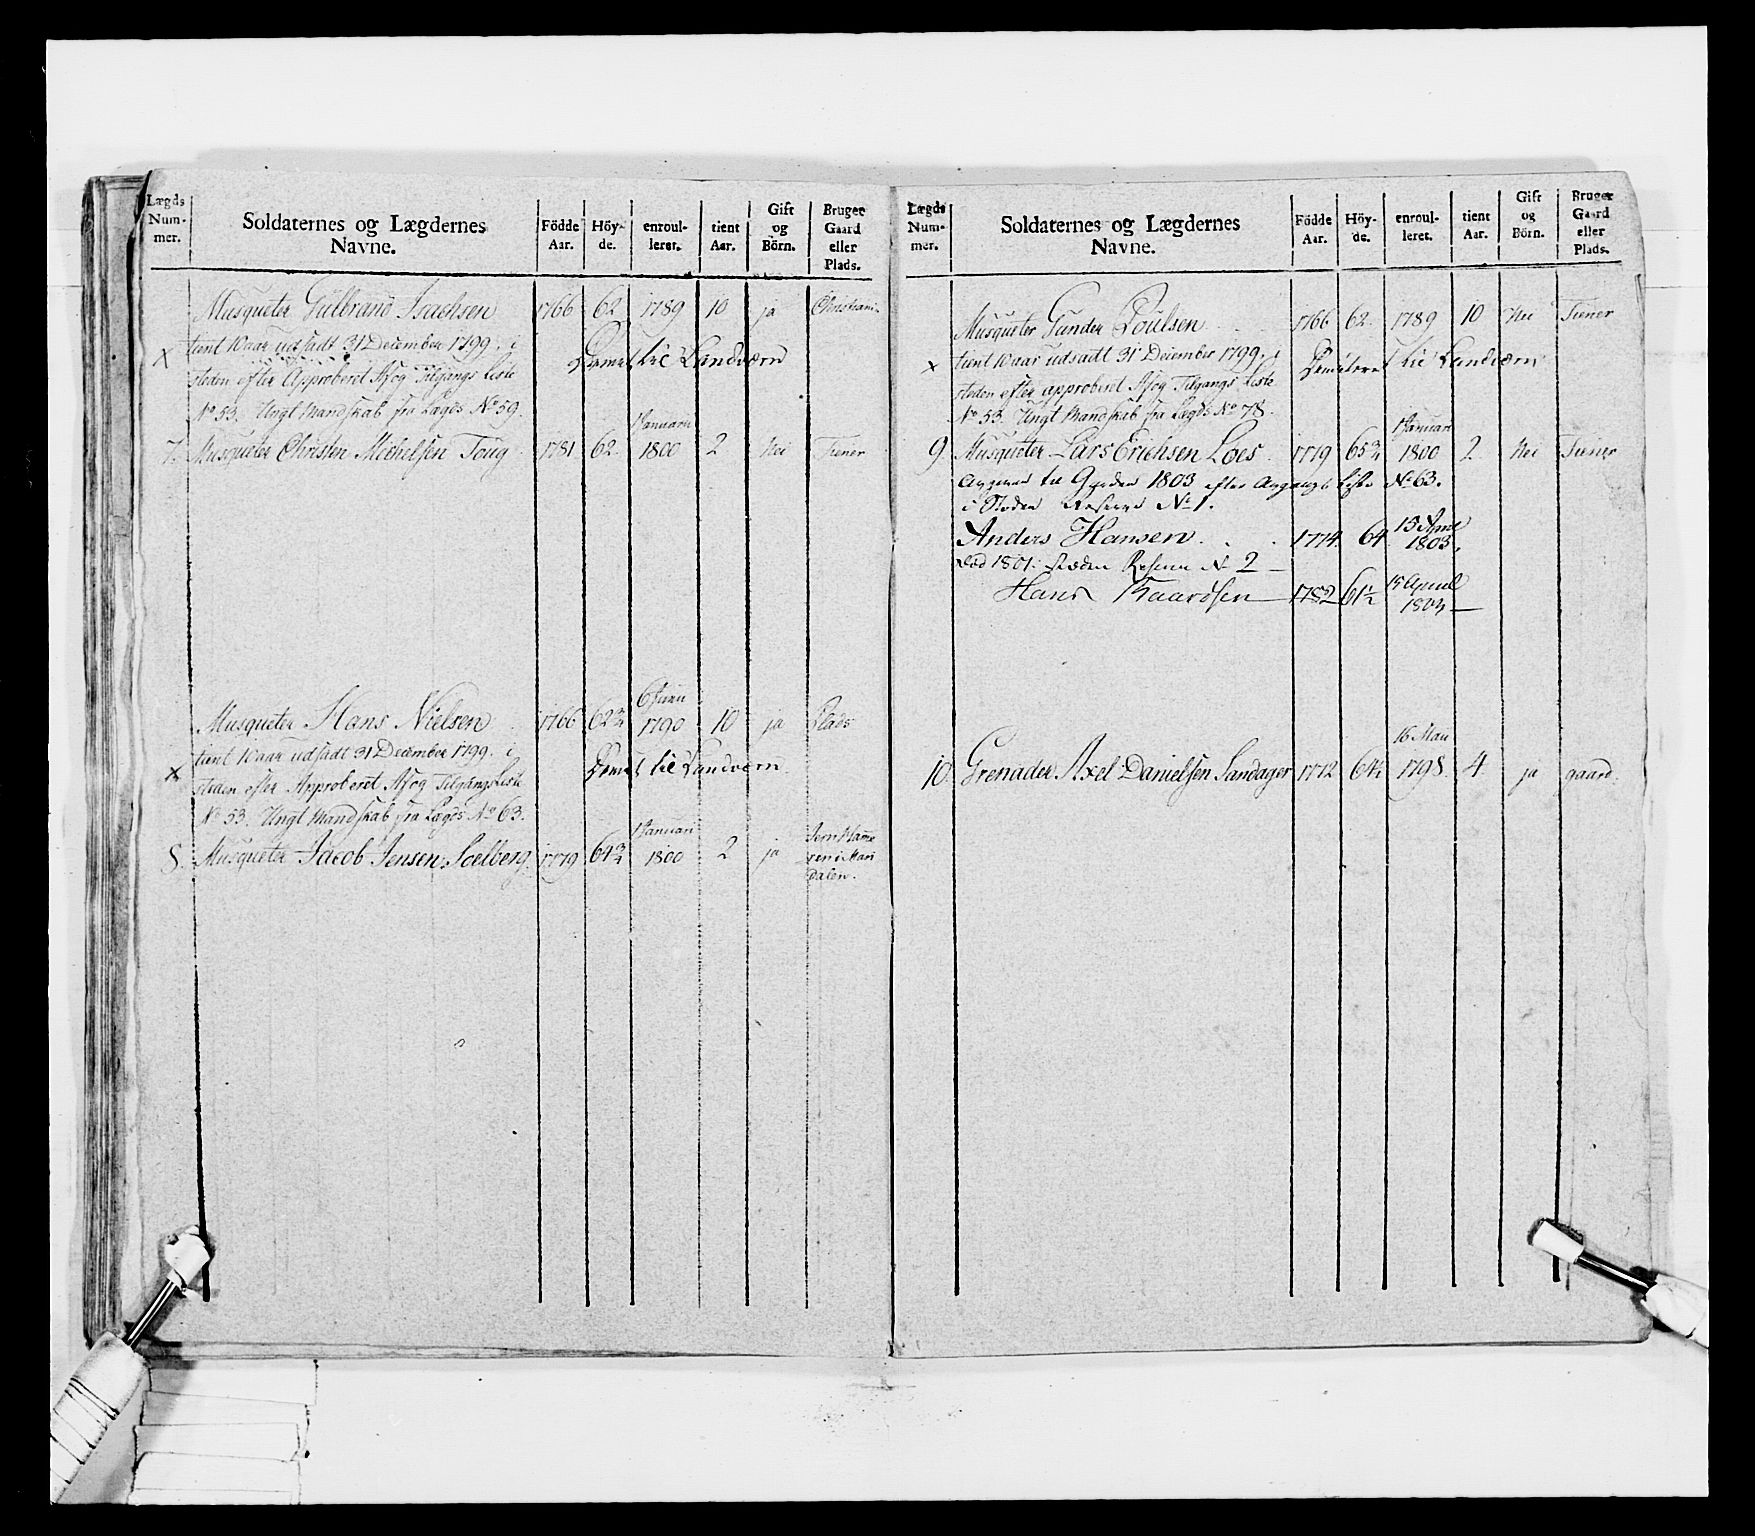 Lægds Num-mer.
Soldaternes og Lægdernes Navne.
Födde Aar.
Höy-de.
enroul-leret.
tient Aar.
Gift og Börn.
Bruger Gaard eller Plads.
Musqueter Gulbrand Isachsen 1766 62 1789 10 ja Christiani
tient 10 aar udsadt 31 December 1799. i
X
steden efter Approberet Af og Tilgangs Liste
til Landværn
No 53. Ungt Mandskab fra Lægds No 59.
1 Januarii
7. Musqueter Christen Michelsen Toug 1781 62 1800 2 Nei Tiener
6 Juni
Musqueter Hans Nielsen 1766 62 3/4 1790 10 ja Plads
tient 10 aar udsadt 31 December 1799. i
X
til Landværn
steden efter Approberet Af og Tilgangs Liste
No 53. Ungt Mandskab fra Lægds No 63.
1 Januari
8. Musqueter Jacob Jensen Soelberg 1779 64 3/4 1800 2 ja Jern Hamme
ren i Mari
dalen.
Lægds Num-mer.
Soldaternes og Lægdernes Navne.
Födde Aar.
Höy-de.
enroul-leret.
tient Aar.
Gift og Börn.
Bruger Gaard eller Plads.
Musqueter Gunder Poulsen 1766 62 1789 10 Nei Tiener
tient 10 aar udsadt 31 December 1799. i
X
til Landværn
steden efter approberet Af og Tilgangs Liste
No 53. Ungt Mandskab fra Lægds No 78.
1 Januari
9 Musqueter Lars Erichsen Loes 1779 65 3/4 1800 2 Nei Tiener
til 1803 efter Afgangs Liste No 63.
i Steden Reserve No 1.
Anders Hansen 1774. 64 15 April 1803.
1801. steden Reserve No 2
Hans Baardsen 1782 61 1/2 15 April 1803
16 Mai
10. Grenader Axel Danielsen Sandager 1772 64 1/2 1798. 4 ja gaard.